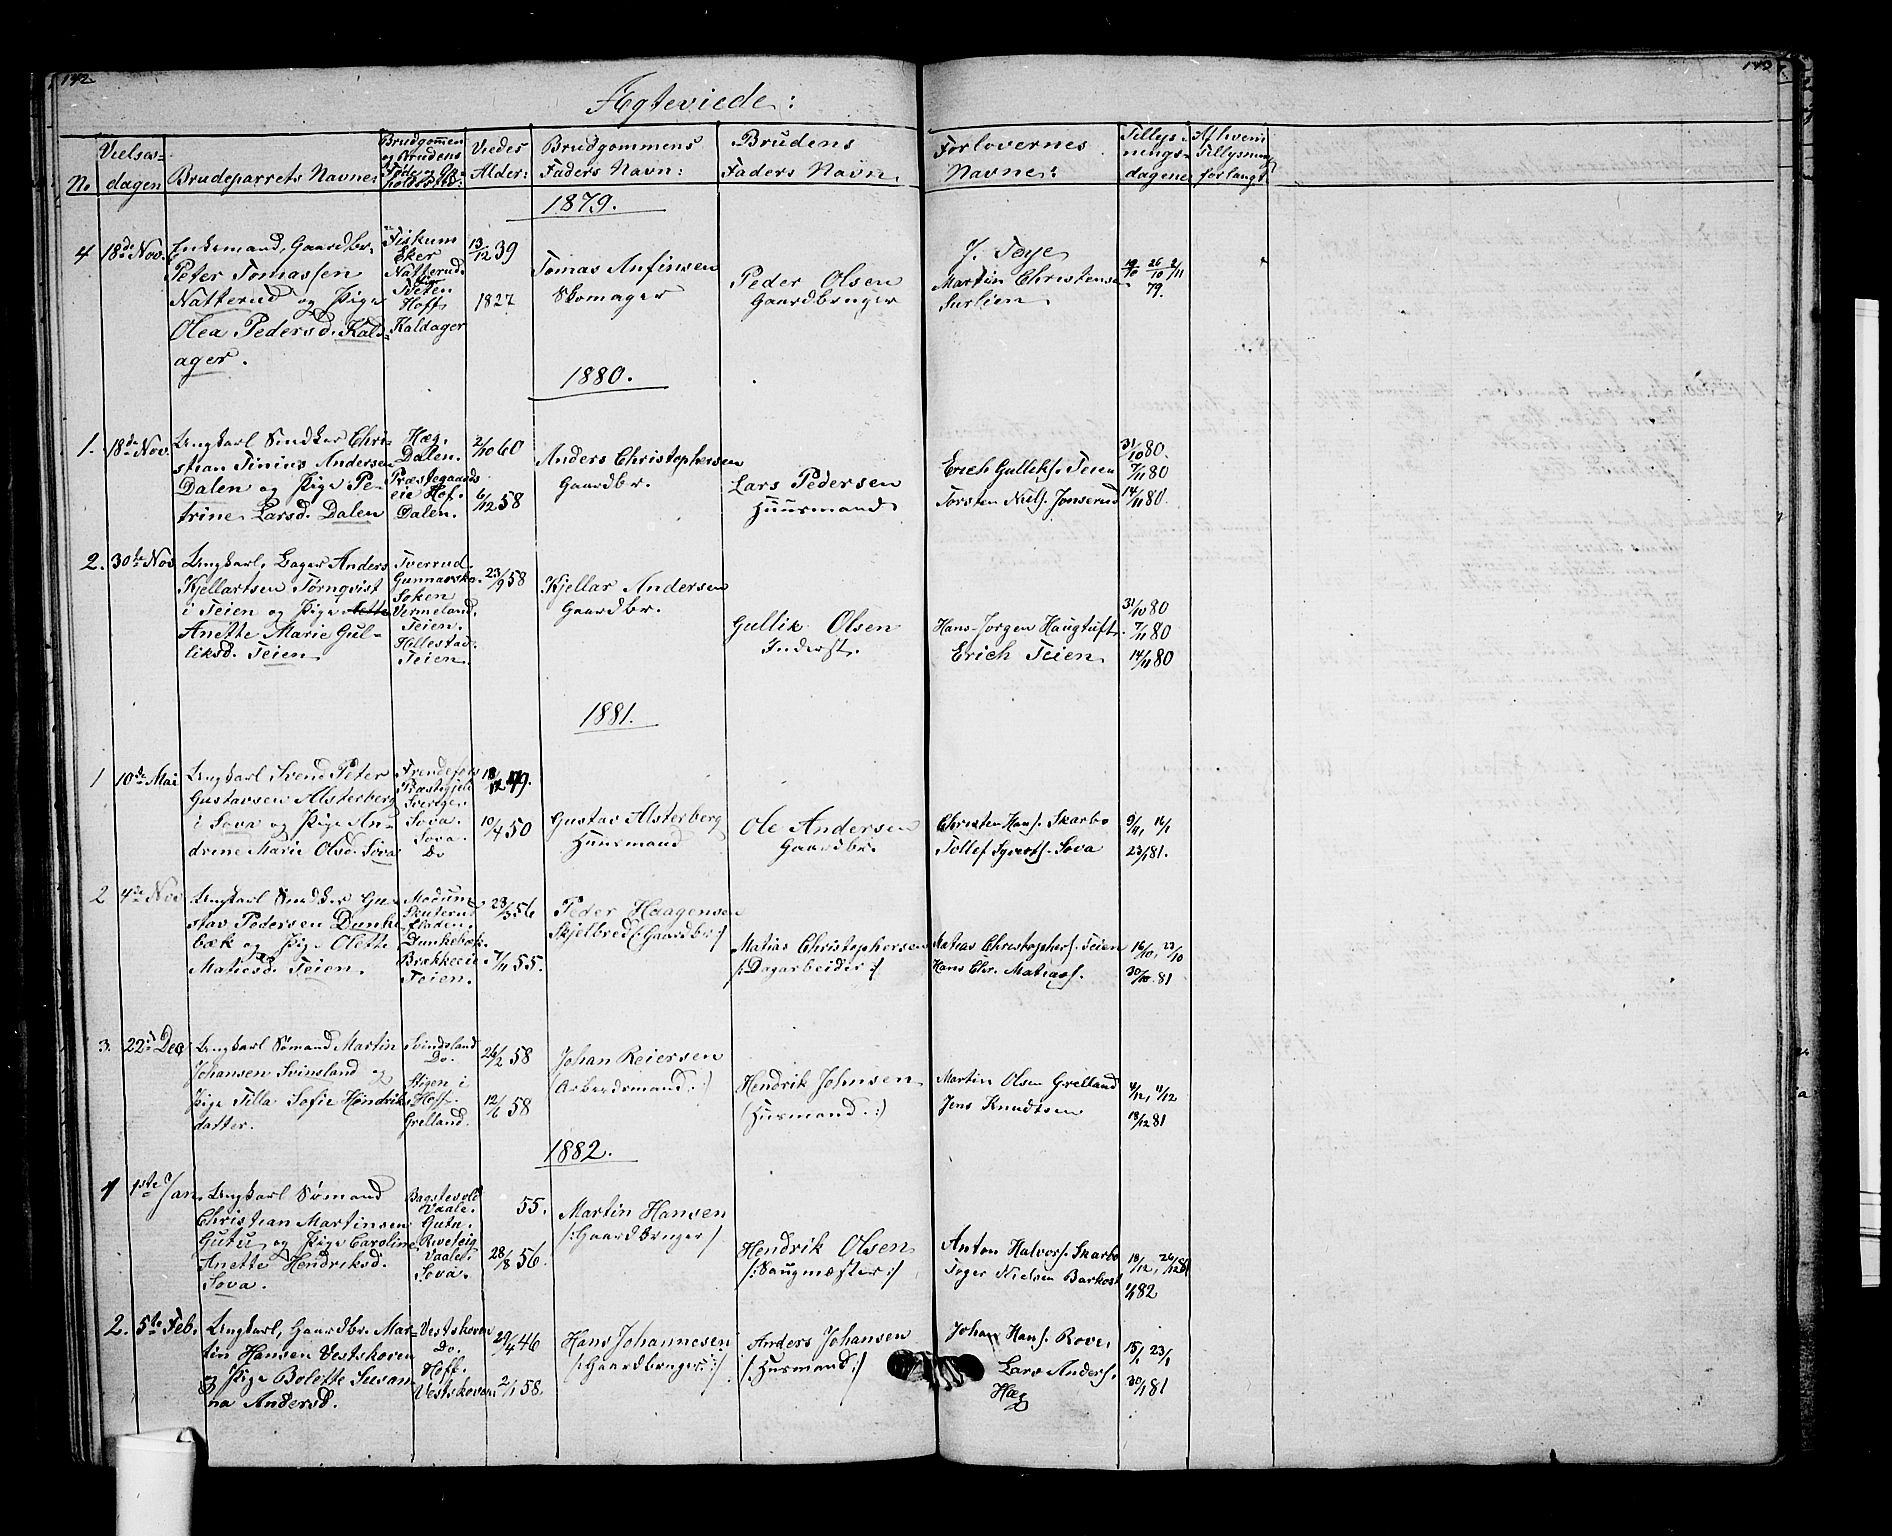 142
143
Ægteviede:
No
Vielses-
dagen
Brudeparrets Navne:
Brudgommen
og Brudens
Føde og Op-
holdssted:
Viedes
Alder:
Brudgommens
Faders Navn:
Brudens
Faders Navn.
Forlovernes
Navne:
Tillys-
nings-
dagene
Af hvem
Tillysning
forlangt
1879.
4 18de Nov.
Enkemand, Gaardbr.
Peter Tomassen
Natterud og Pige
Olea Pedersd. Kald-
ager.
Fiskum
Eker
Natterud
Tveten
Hoff
Kaldager
13/12 39
1827
Tomas Anfinsen
Skomager
Peder Olsen
Gaardbruger
J. Foye
Martin Christensen
Surlien
19/10 26/10 2/11
79.
1880.
1. 18de Nov.
Ungkarl Snedker Chri-
stian Tinius Andersen
Dalen og Pige Pe-
trine Larsd. Dalen
Hæg.
Dalen.
Præstegaards
eie Hof.
Dalen.
2/10 60
6/12 58
Anders Christophersen
Gaardbr.
Lars Pedersen
Huusmand
Erich Gulliks. Teien
Torsten Niels. Jonserud
31/10 80.
7/11 80
14/11 80.
2. 30te Nov
Ungkarl, Bager Anders
Kjellartsen Tørnqvist
i Teien og Pige Nette
Anette Marie Gul-
liksd. Teien
Tverrud
Gunnarsko-
Soken
Vermeland.
Teien.
Hillestad.
Teien.
23/9 58
Kjellar Andersen
Gaardbr.
Gullik Olsen
Inderst.
Hans Jørgen Haugtuft.
Erich Teien
31/10 80
7/11 80
14/11 80
1881.
1 10de Mai
Ungkarl Svend Peter
Gustavsen Alsterberg
i Sova og Pige An-
drine Marie Olsd. Sova
Frendefors
Præstegjeld
Sverige.
Sova.
Sova.
Do
18/12 49.
10/4 50
Gustav Alsterberg
Huusmand
Ole Andersen
Gaardbr.
Christen Hans. Skarbo
Tollef Syverts. Sova
9/1, 16/1
23/1 81.
2 4de Nov
Ungkarl Snedker Gu-
stav Pedersen Dunke
bæk og Pige Olette
Matiesd. Teien.
Modum
Skuterud
Eladen.
Dunkebæk.
Brækkeeie
Teien.
23/3 56
7/11 55.
Peder Haagensen
Skjelbred (: Gaardbr :)
Matias Christophersen
/: Dagarbeider :/
Matias Christophers. Teien
Hans Chr. Matias.
16/10, 23/10
30/10. 81
3. 22de Dec
Ungkarl Sømand Martin
Johansen Svinsland og
Pige Tilla Sofie Hendrik-
datter.
Svindsland
Do.
Stigen i
Hoff.
Grelland.
26/2 58
12/6 58
Johan Reiersen
(Arbeidsmand :)
Hendrik Johnsen
(Husmand :)
Martin Olsen Grelland
Jens Knudtsen
4/12, 11/12
18/12 81
1882.
1 1ste Jan.
Ungkarl Sømand
Christian Martinsen
Gutu og Pige Caroline
Anette Hendriksd.
Sova.
Bagstevold
Vaale.
Gutu.
Rveseig
Vaale.
Sova.
55.
28/8 56
Martin Hansen
/: Gaardbruger /
Hendrik Olsen
/: Saugmester :/
Anton Halvors. Skarbo
Toger Nielsen Barkost
18/12, 26/12 81
1/1 82
2. 5te Feb.
Ungkarl, Gaardbr. Mar-
tin Hansen Vestskoven
og Pige Bolette Susan
na Andersd.
Vestskoven
Do.
Hoff.
Vestskoven
29/4 46
2/1 58.
Hans Johannesen
/: Gaardbruger :/
Anders Johansen
/: Husmand :/
Johan Hans. Rove
Lars Anders.
Hæg
15/1 23/1
30/1 81